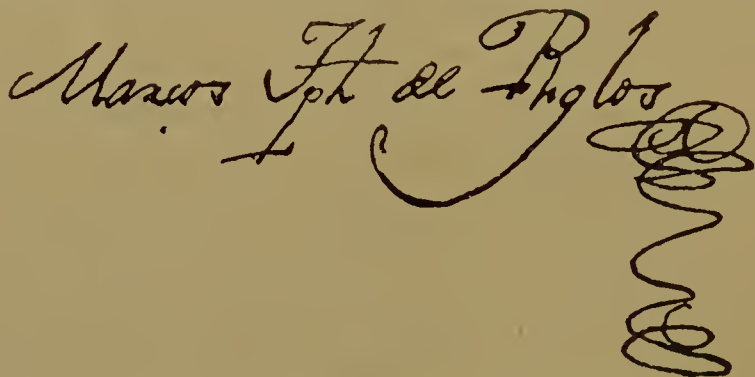 Marcos Jph de Rhglos